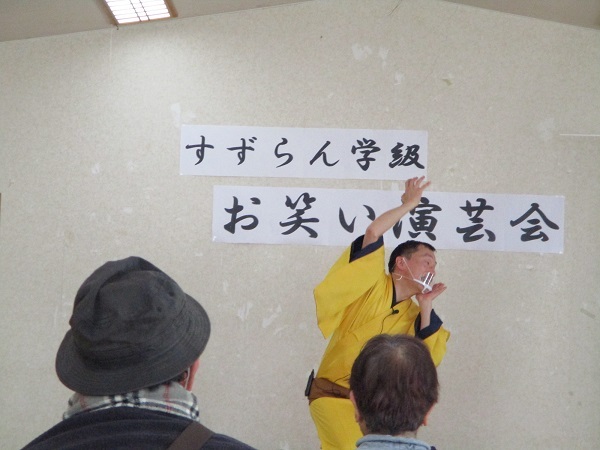 すずらん学級
お笑い演芸会